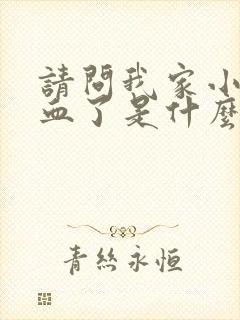 請問我家小
血了是什麼
青絲永恒